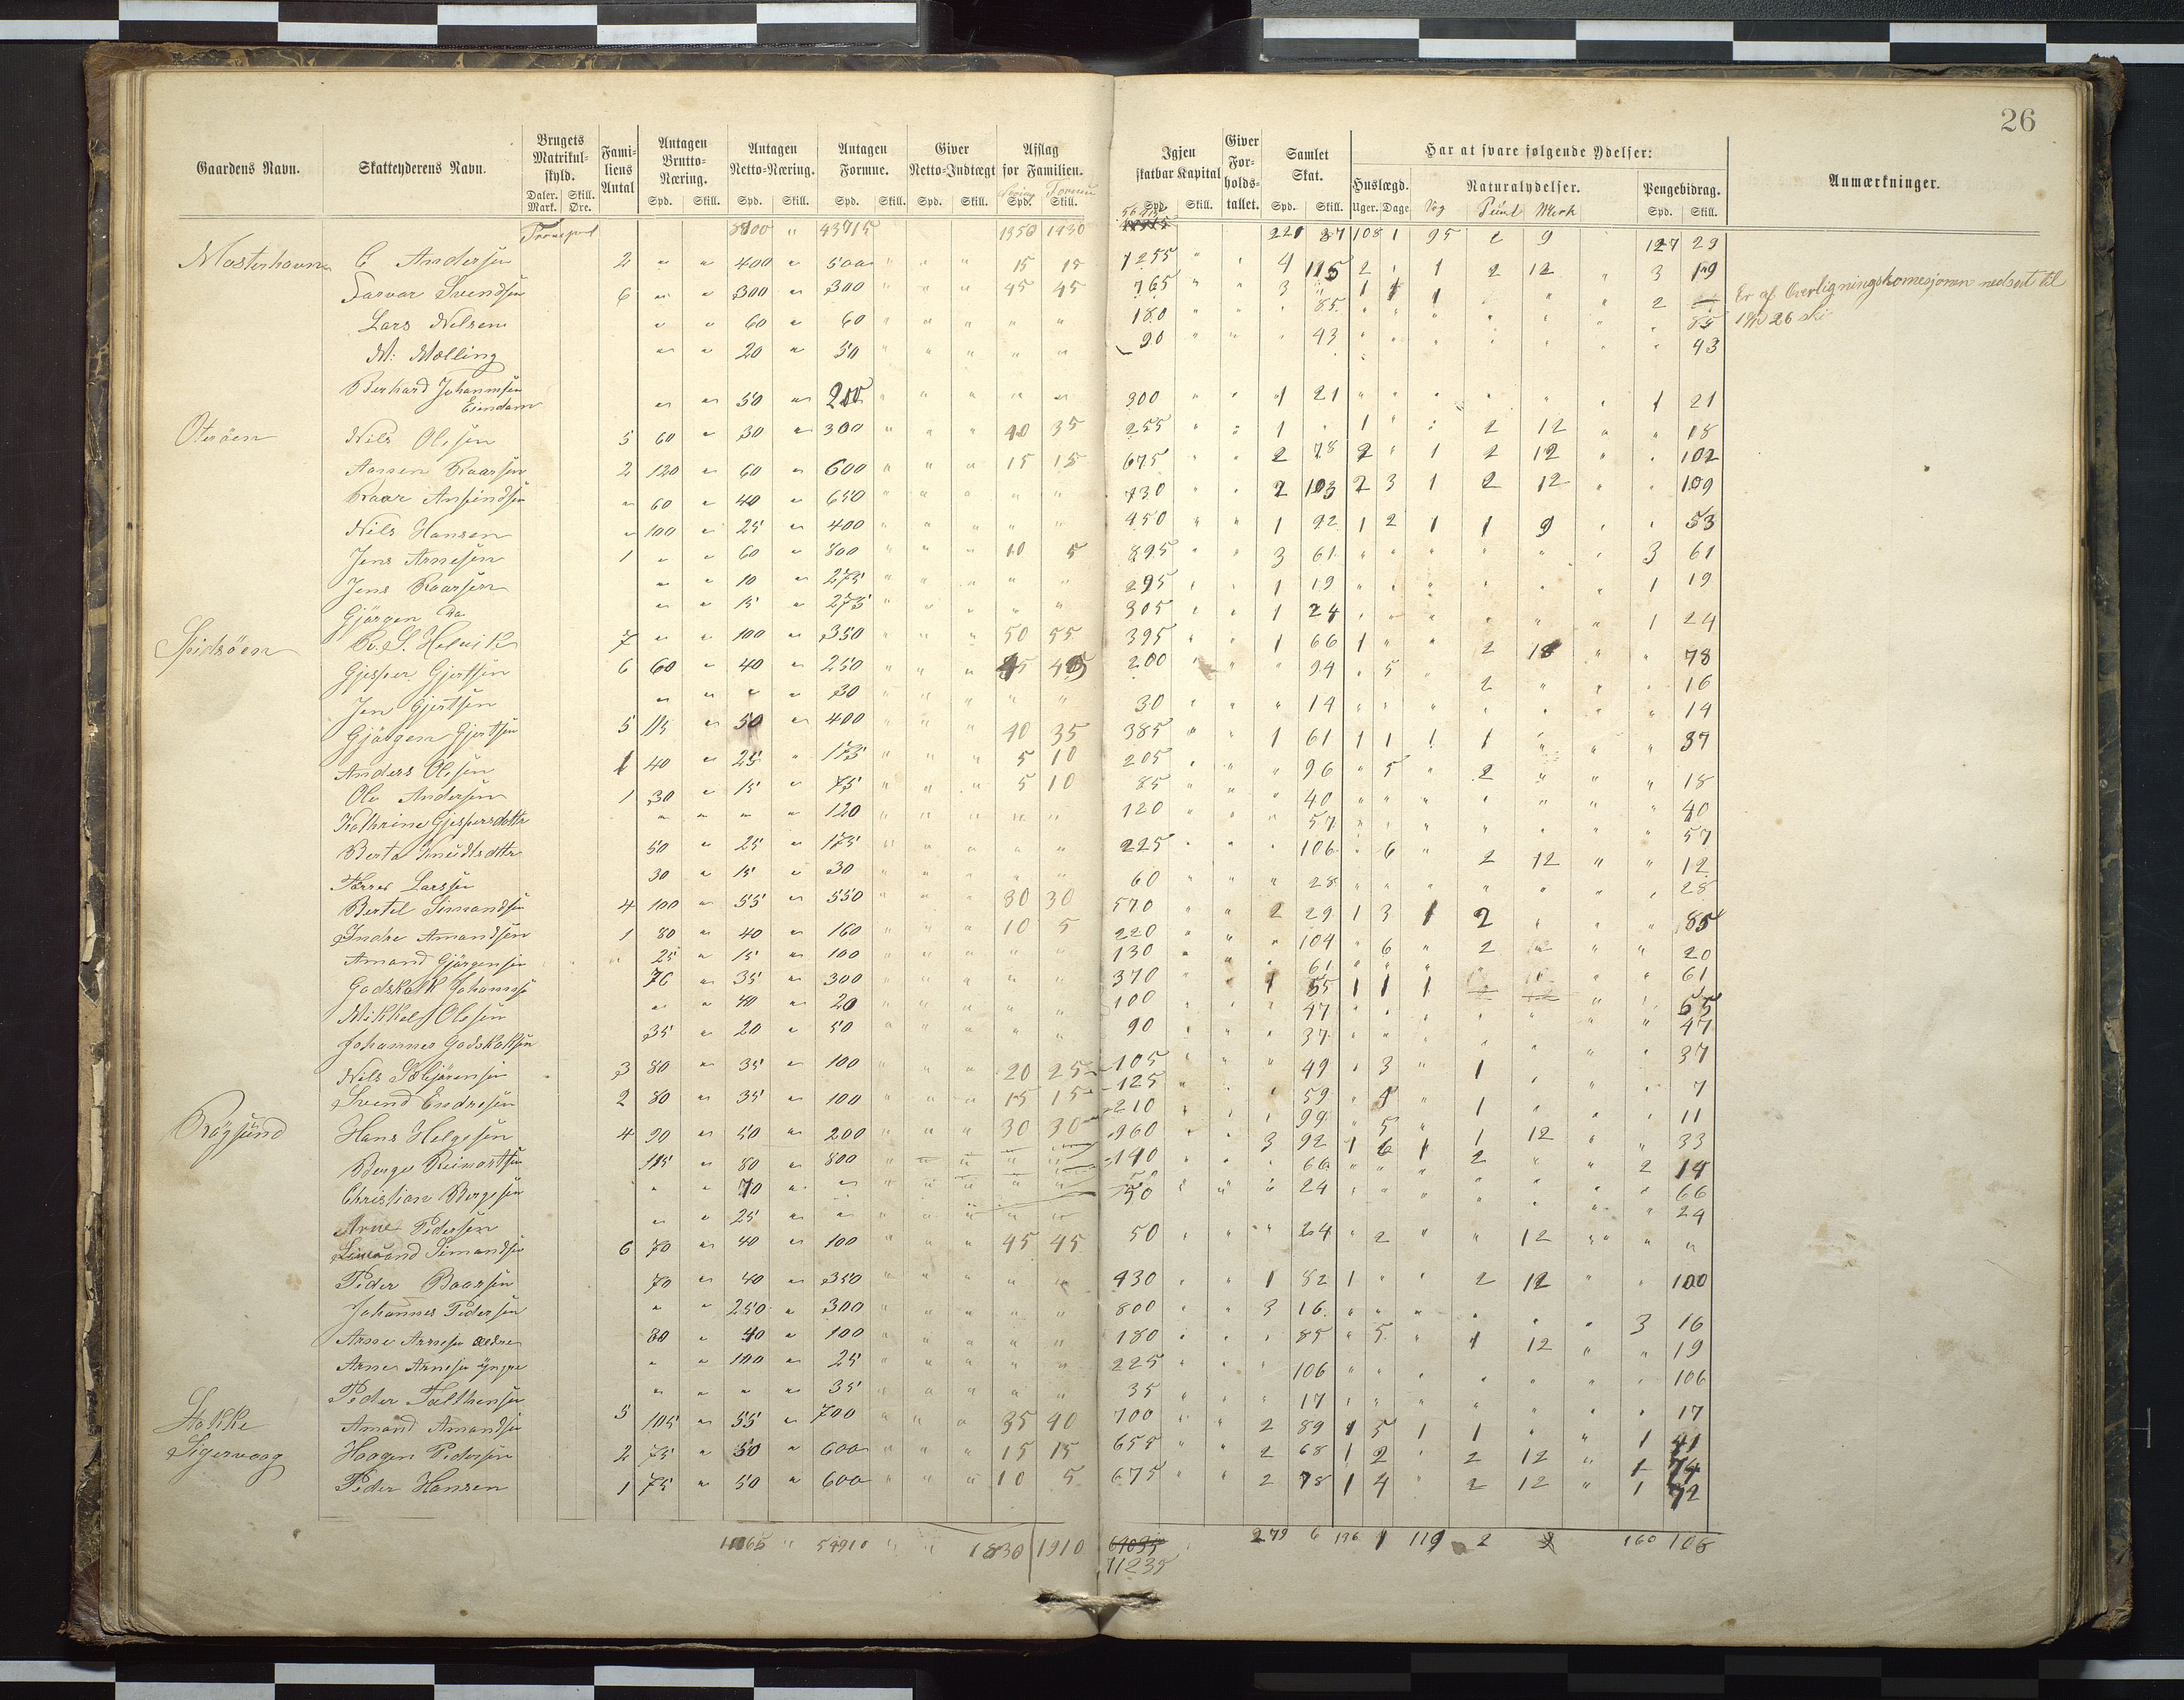 26
Gaardens Navn. Skatteyderens Navn. Brugets Matrikulskyld. Daler. Mark. Skill. Øre. Familiens Antal Antagen Brutto-Næring. Spd. Skill. Antagen Netto-Næring. Spd. Skill. Antagen Formue. Spd. Skill. Giver Netto-Indtægt Spd. Skill. Afslag for Familien. Næring Formue Spd. Skill. Igjen skatbar Kapital Spd. Skill. Giver Forholdstallet. Samlet Skat. Spd. Skill. Har at svare følgende Ydelser: Huslægd. Uger. Dage Naturalydelser. Vog Pund Merk Pengebidrag. Spd. Skill. Anmærkninger.
Transport 8800 " 43715 1356 1430 221 87 108 1 95 2 9 127 29
Mosterhavn C Andersen 2 " " 400 " 500 " " " 15 15 1255 " " 4 115 2 " 1 2 12 " 3 109
Svendsen 6 " " 300 " 300 " " " 45 45 765 " " 3 " 1 1 1 " " " 2 Er af Overligningskomesjonen nedsat til
Lars Nilsen " " 60 " 60 " " " " " 180 " " " 85 " " " " " " " 85 1 26 ski
M: Mølling " " 20 " 50 " " " " " 90 " " " 43 " " " " " " " 43
Berhard Johannesen
Eiendam " " 50 " 200 " " " " " 300 " " 1 21 " " " " " " 1 21
Oterøen Nils Olsen 5 60 " 30 " 300 " " " 40 35 255 " " 1 " 1 " " 2 12 " " 18
Aamen Roarsen 2 120 " 60 " 600 " " " 15 15 675 " " 2 78 2 " 1 2 12 " " 102
Roar " 60 " 40 " 650 " " " " " 730 " " 2 103 2 3 1 2 12 " " 109
Nils Hansen " 100 " 25 " 400 " " " " " 450 " " 1 92 1 2 1 1 9 " " 53
Jens Arnesen 1 " " 60 " 800 " " " 10 5 895 " " 3 61 " " " " " " 3 61
Jens Roarsen " " 10 " 275 " " " " " 295 " " 1 19 " " " " " " 1 19
Gjørgen Do " " 15 " 275 " " " " " 305 " " 1 24 " " " " " " 1 24
Spidsøen R. S. Helvik 7 " " 100 " 350 " " " 50 55 395 " " 1 66 1 " " 2 18 " " 78
Gjesper Gjertsen 6 60 " 40 " 250 " " " 45 45 200 " " " 94 " 5 " 2 " " " 16
Jen Gjertsen " " " " 30 " " " " " 30 " " " 14 " " " " " " " 14
Gjørgen Gjertsen 5 115 " 50 " 400 " " " 40 35 385 " " 1 61 1 1 1 1 " " " 37
Anders Olsen 1 40 " 25 " 175 " " " 5 10 205 " " " 96 " 5 " 2 " " " 18
Ole Andersen 1 30 " 15 " 75 " " " 5 10 85 " " " 40 " " " " " " " 40
Kathrine Gjespersdatter " " " " 120 " " " " " 120 " " " 57 " " " " " " " 57
Berta Knudtsdttr 50 " 25 " 175 " " " " " 225 " " " 106 " 6 " 2 12 " " 12
Larssen 30 " 15 " 30 " " " " " 60 " " " 28 " " " " " " " 28
Bertel Simondsen 4 100 " 55 " 550 " " " 30 30 570 " " 2 29 1 3 1 2 " " " 85
Indre Amandsen 1 80 " 40 " 160 " " " 10 5 220 " " " 104 " 6 " 2 " " " 20
Amand Gjørgensen 25 " 15 " 100 " " " " " 130 " " " 61 " " " " " " " 61
Godskalk Johannes 76 " 35 " 300 " " " " " 370 " " 1 55 1 1 1 " " 55
Mikkel Olsen " " 40 " 20 " " " " " 100 " " " 47 " " " " " " " 47
Johannes Godskalksen 35 " 20 " 50 " " " " " 90 " " " 37 " " " " " " " 37
Nils 3 80 " 35 " 100 " " " 20 25 105 " " " 49 " 3 " 1 " " " 7
Svend Endresen 2 80 " 35 " 100 " " " 15 15 125 " " " 59 " 4 " 1 " " " 11
Røgsund Hans Helgesen 4 90 " 50 " 200 " " " 30 30 210 " " " 99 " 5 " 1 12 " " 33
Berge 115 " 80 " 800 " " " " " 960 " " 3 92 1 6 1 2 " " 2 14
Christian Bergesen " " 70 " " " " " " " 140 " " " 66 " " " " " " " 66
Arne Pedersen " " 25 " " " " " " " 50 " " " 24 " " " " " " " 24
Simand Simandsen 6 70 " 40 " 100 " " " 45 45 50 " " " 24 " 2 " " 12 " " "
Peder Baarsen 70 " 40 " 350 " " " " " 430 " " 1 82 1 " " 2 12 " " 100
Johannes Pedersen " " 250 " 300 " " " " " 800 " " 3 16 " " " " " " 3 16
Arne Arnesen ældre 80 " 40 " 100 " " " " " 180 " " " 85 " 5 " 1 12 " " 19
Arne Arnesen yngre " " 100 " 25 " " " " " 225 " " " 106 " " " " " " " 106
Peder " " " " 35 " " " " " 35 " " " 17 " " " " " " " 17
Stokke Amand Amandsen 5 105 " 55 " 700 " " " 35 40 700 " " 2 89 1 5 1 1 " " 1 41
Sigervaag Haagen Pedersen 2 75 " 50 " 600 " " " 15 15 655 " " 2 68 1 2 " 2 12 " 1 74
Peder Hansen 1 75 " 50 " 600 " " " 10 5 675 " " 2 78 1 4 " 2 12 " 1 72
11065 " 54910 " " 1830 1910 279 6 136 1 119 2 160 106
71235